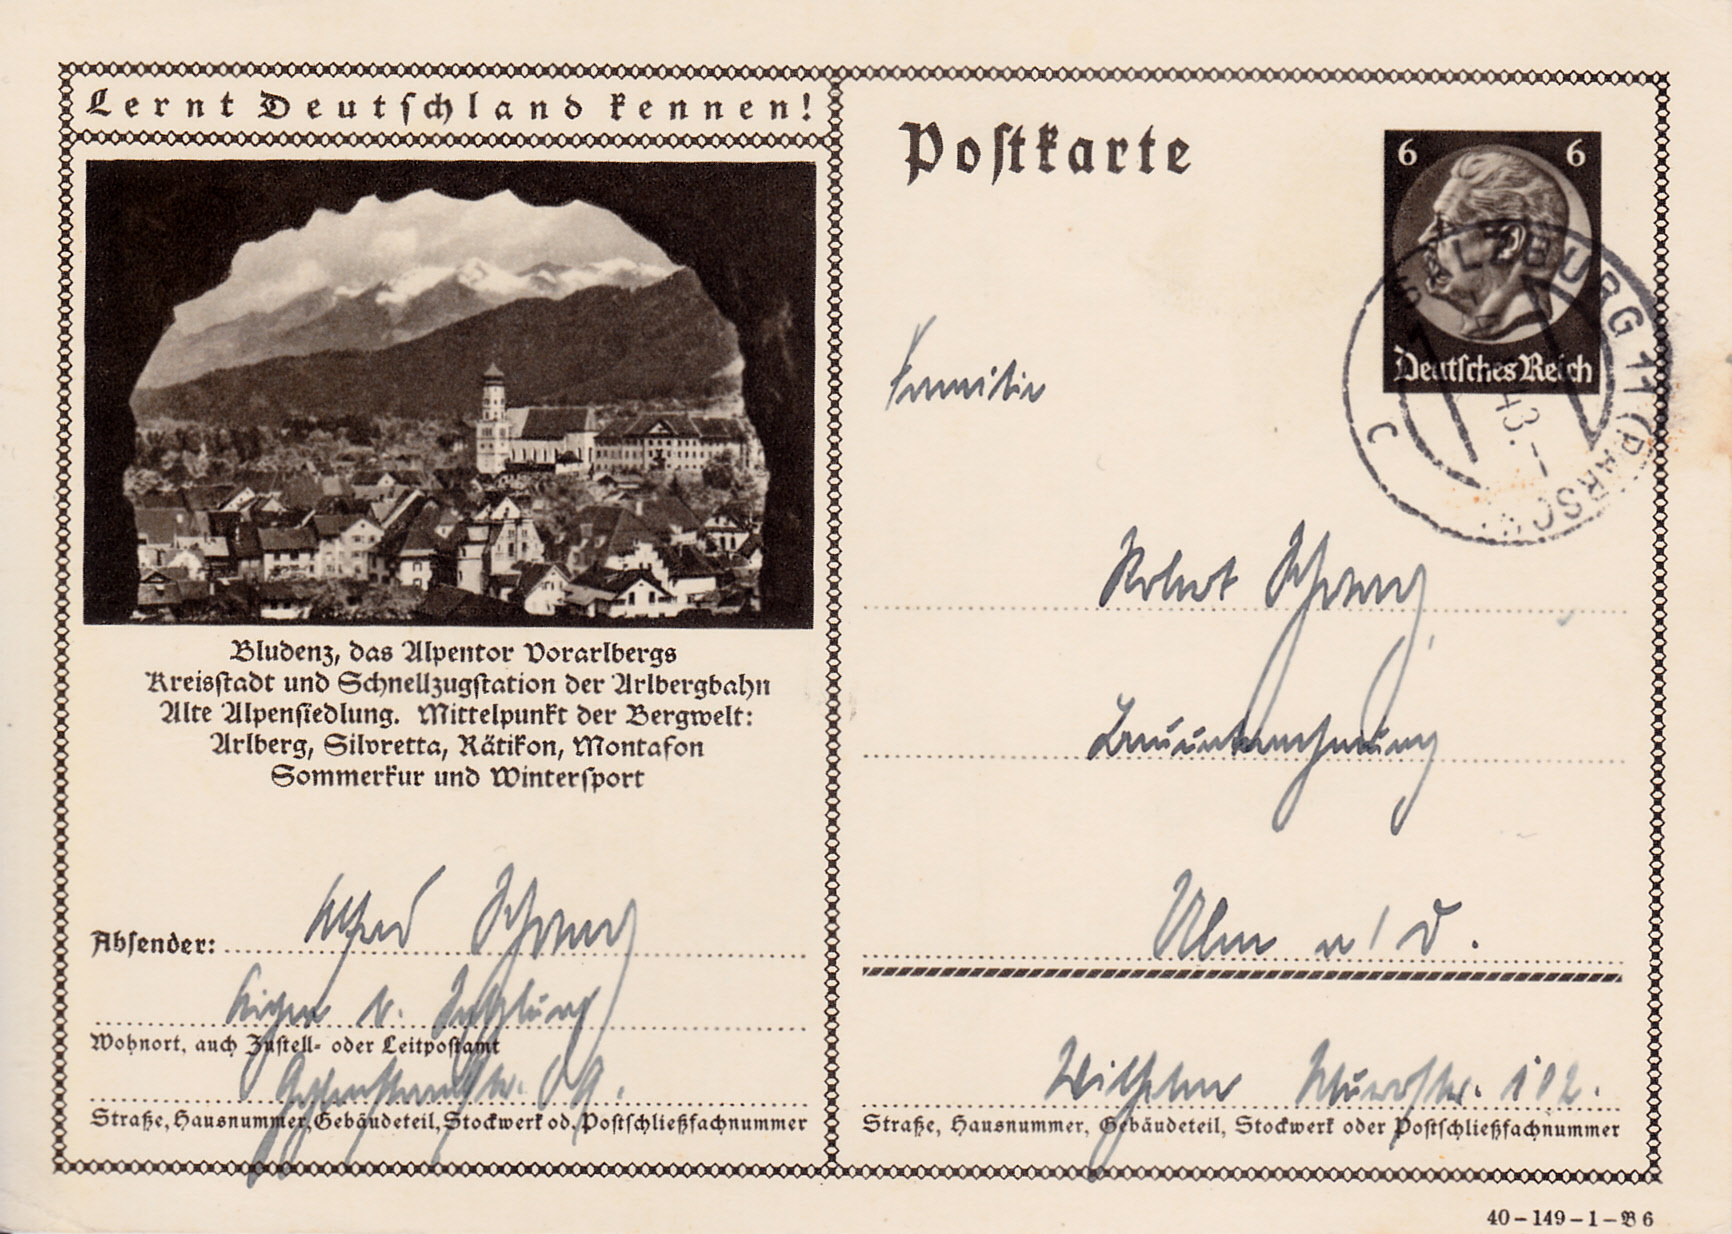 Lernt Deutschland kennen!
Bludenz, das Alpentor Vorarlbergs
Kreisstadt und Schnellzugstation der Arlbergbahn
Alte Alpensiedlung. Mittelpunkt der Bergwelt:
Arlberg, Silvretta, Rätikon, Montafon
Sommerkur und Wintersport
Absender: Alfred
Aigen b. Salzburg
Wohnort, auch Zustell- oder Leitpostamt
Straße, Hausnummer, Gebäudeteil, Stockwerk od. Postschließfachnummer
Postkarte
6 6
Deutsches Reich
SALZBURG 11 (PARSCH)
43.-
c
Familie
Robert
Bauunternehmung
Ulm a/D.
Wilhelm Murrstr. 102.
Straße, Hausnummer, Gebäudeteil, Stockwerk oder Postschließfachnummer
40-149-1-B6